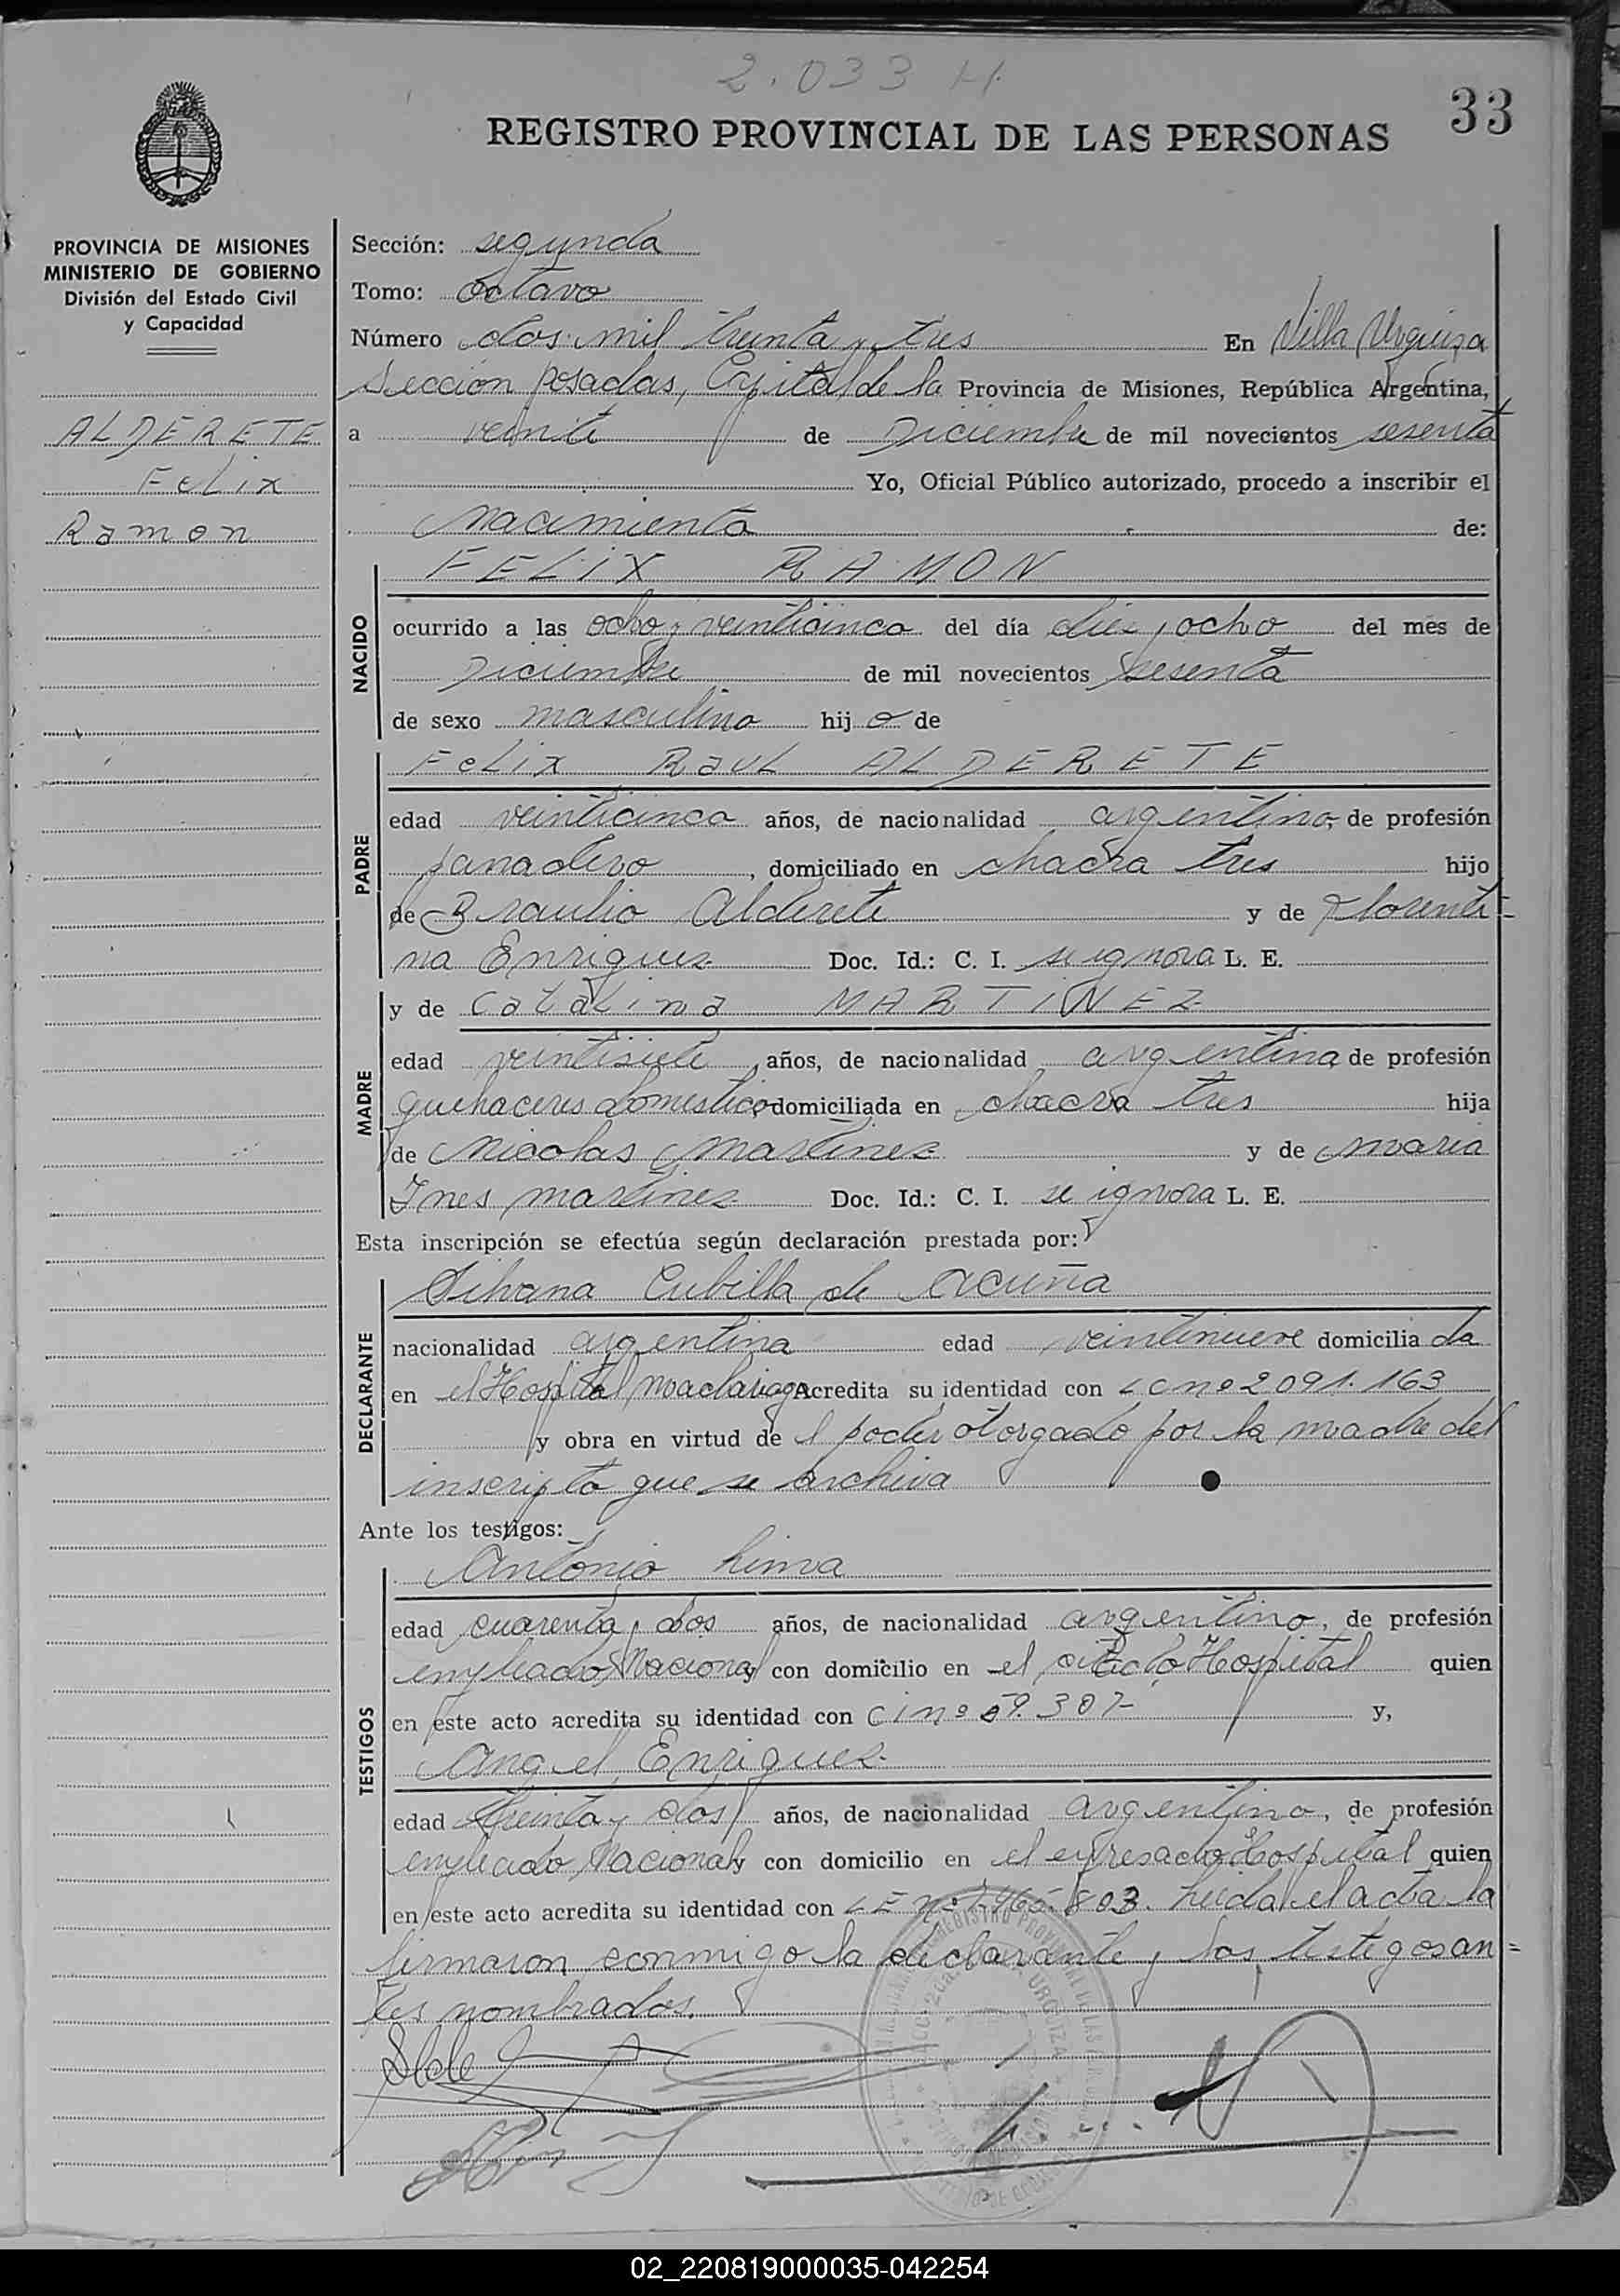 2.033 H
REGISTRO PROVINCIAL DE LAS PERSONAS
33
PROVINCIA DE MISIONES
MINISTERIO DE GOBIERNO
División del Estado Civil
y Capacidad
ALDERETE
Felix
Ramon
Sección: segunda
Tomo: Octavo
Número dos mil treinta y tres En Villa Urquiza
Sección Posadas, Capital de la Provincia de Misiones, República Argentina,
a veinte de Diciembre de mil novecientos sesenta
Yo, Oficial Público autorizado, procedo a inscribir el
Nacimiento de:
NACIDO
FELIX RAMON
ocurrido a las ocho y veinticinco del día diez y ocho del mes de
Diciembre de mil novecientos sesenta
de sexo masculino hijo de
PADRE
Felix Raul ALDERETE
edad veinticinco años, de nacionalidad argentino, de profesión
panadero, domiciliado en chacra tres hijo
de Braulio Alderete y de Florenti=
na Enriquez Doc. Id.: C. I. se ignora L. E.
MADRE
y de Catalina MARTINEZ
edad veintisiete años, de nacionalidad argentina, de profesión
quehaceres domestico domiciliada en chacra tres hija
de Nicolas Martinez y de Maria
Ines Martinez Doc. Id.: C. I. se ignora L. E.
Esta inscripción se efectúa según declaración prestada por:
DECLARANTE
Silvana Cubilla de Acuña
nacionalidad argentina edad veintinueve domiciliada
en el Hospital Madariaga Acredita su identidad con L C nº 2091.163
y obra en virtud de l poder otorgado por la madre del
inscripto que se archiva
Ante los testigos:
TESTIGOS
Antonio Lima
edad cuarenta y dos años, de nacionalidad argentino, de profesión
empleado Nacional y con domicilio en el citado Hospital quien
en este acto acredita su identidad con C I nº 59.307 y,
Angel Enriquez
edad treinta y dos años, de nacionalidad argentino, de profesión
empleado Nacional y con domicilio en el expresado Hospital quien
en este acto acredita su identidad con L E nº Leida el acta la
firmaron conmigo la declarante y los testigos an=
tes nombrados.
02_220819000035-042254